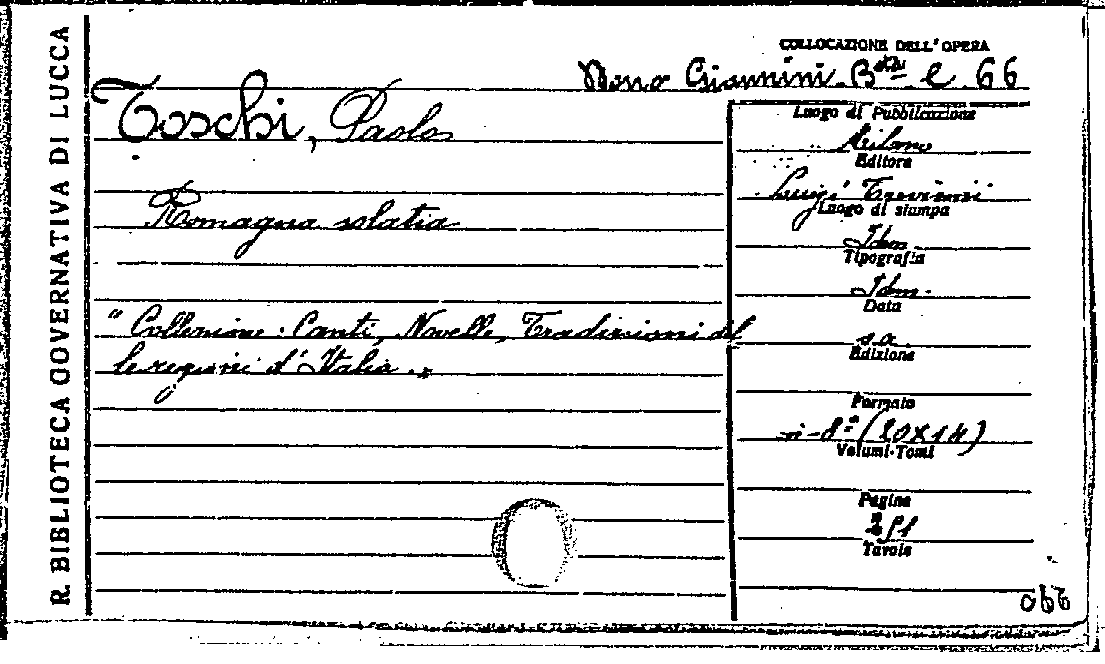 R. BIBLIOTECA GOVERNATIVA DI LUCCA
COLLOCAZIONE DELL'OPERA
Dono Giannini B.sta C. 66
Toschi, Paolo
Romagna solatia
"Collezione: Canti, Novelle, Tradizioni del
le regioni d'Italia."
Luogo di Pubblicazione
Milano
Editore
Luigi Trevisini
Luogo di stampa
Idem
Tipografia
Idem.
Data
s.a.
Edizione
Formato
in-8° (20x14)
Volumi-Tomi
Pagine
291
Tavole